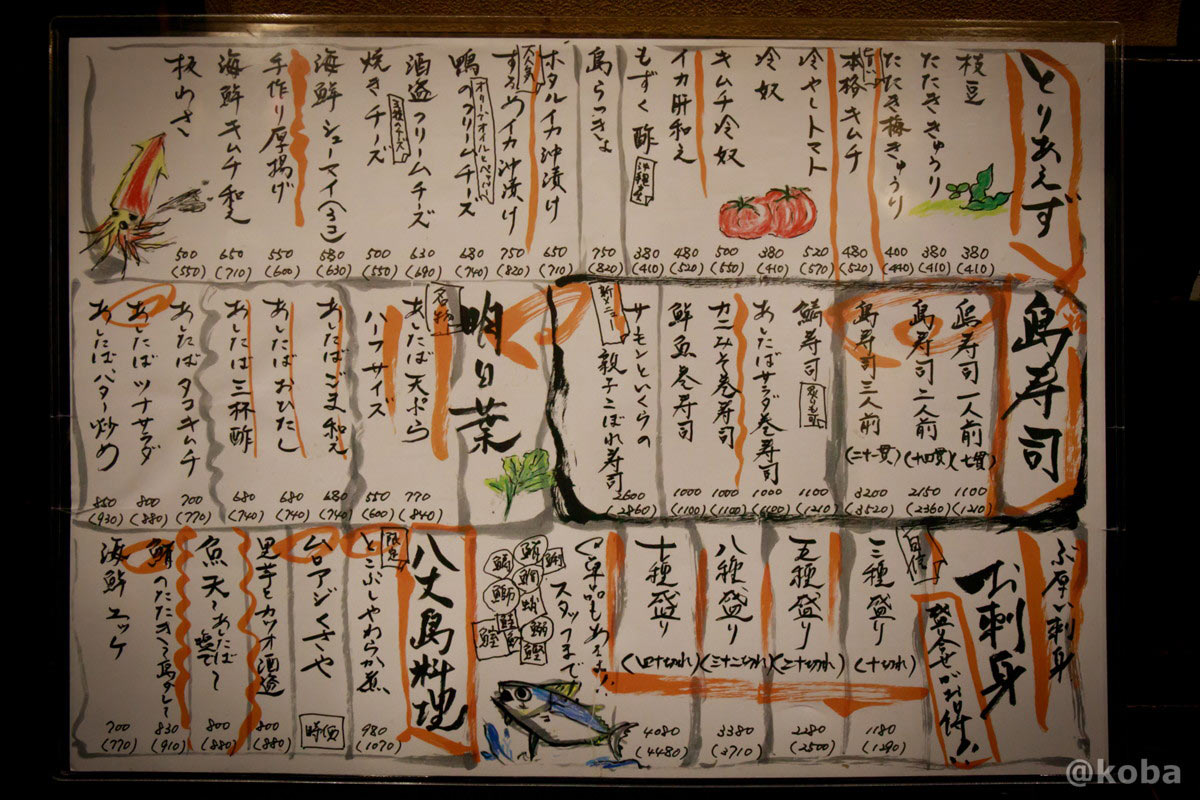 とりあえず
枝豆 380 (410)
たたききゅうり 380 (410)
たたき梅きゅうり 400 (440)
本格キムチ 480 (520)
冷やしトマト 520 (570)
冷奴 380 (410)
キムチ冷奴 500 (550)
イカ肝和え 480 (520)
もずく酢 沖縄産 380 (410)
島らっきょ 750 (820)
ホタルイカ沖漬け 650 (710)
大人気 するめイカ沖漬け 750 (820)
鴨のクリームチーズ オリーブオイルとペッパー 680 (740)
酒盗クリームチーズ 630 (690)
焼きチーズ 500 (550)
海鮮シューマイ(3コ) 580 (630)
手作り厚揚げ 550 (600)
海鮮キムチ和え 650 (710)
板わさ 500 (550)
島寿司
島寿司一人前 (七貫) 1100 (1210)
島寿司二人前 (十四貫) 2150 (2360)
島寿司三人前 (二十一貫) 3200 (3520)
鯖寿司 炙りも可 1100 (1210)
あしたばサラダ巻寿司 1000 (1100)
カニみそ巻寿司 1000 (1100)
鮮魚巻寿司 1000 (1100)
新メニュー サーモンといくらの親子こぼれ寿司 2600 (2860)
明日葉
名物 あしたば天ぷら 770 (840)
ハーフサイズ 550 (600)
あしたばごま和え 680 (740)
あしたばおひたし 680 (740)
あしたば三杯酢 680 (740)
あしたばタコキムチ 700 (770)
あしたばツナサラダ 800 (880)
あしたばバター炒め 850 (930)
ぶ厚い刺身
お刺身
自慢
盛合せがお得
三種盛り (十切れ) 1180 (1290)
五種盛り (二十切れ) 2280 (2500)
八種盛り (三十二切れ) 3380 (3710)
十種盛り (四十切れ) 4080 (4480)
単品もあります。
スタッフまで
八丈島料理
限定 とこぶしやわらか煮 980 (1070)
ムロアジくさや 時価
里芋とカツオ酒盗 800 (880)
魚天〜あしたば塩で〜 800 (880)
鯖のたたき 830 (910)
海鮮ユッケ 700 (770)
@koba